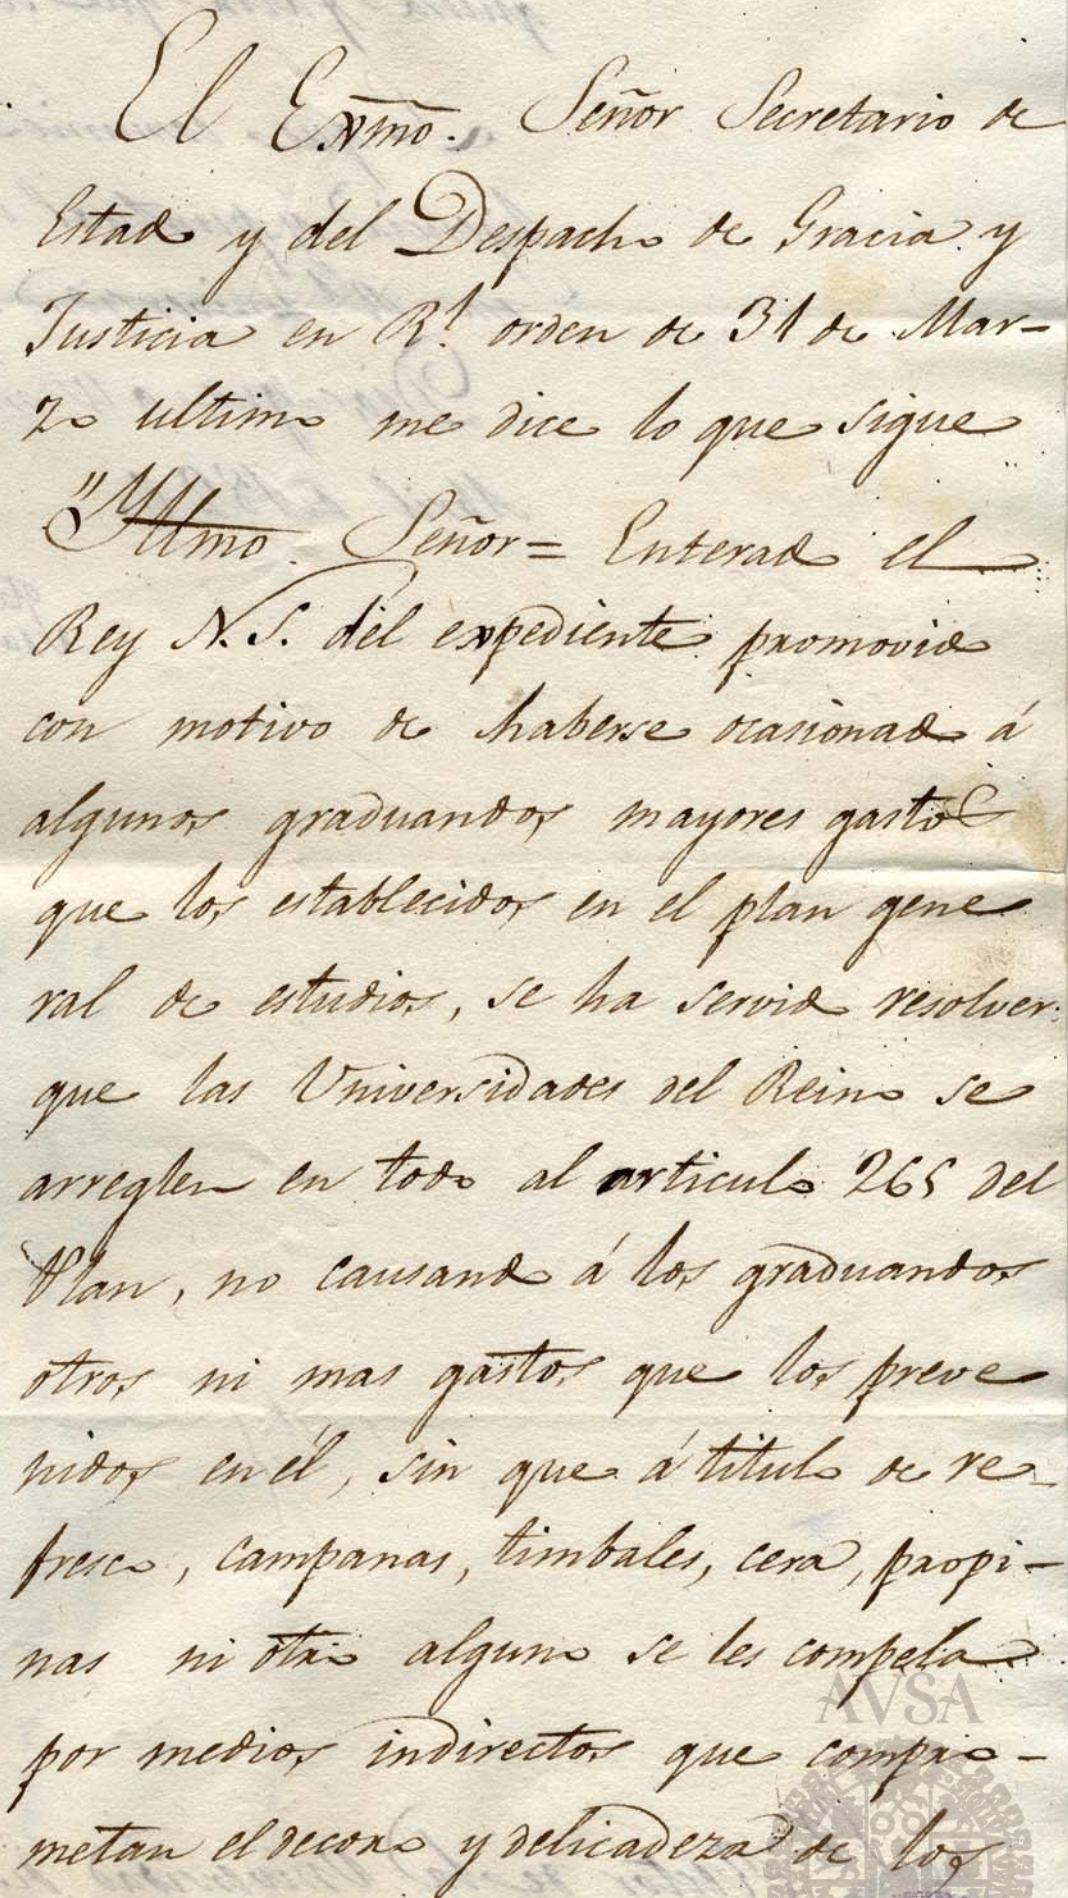 El Exmo. Señor Secretario de
Estado y del Despacho de Gracia y
Justicia en Rl. orden de 31 de Mar-
zo ultimo me dice lo que sigue
"Yllmo. Señor= Enterado el
Rey N.S. del expediente promovido
con motivo de haberse ocasionado á
algunos graduandos mayores gastos
que los establecidos en el plan gene
ral de estudios, se ha servido resolver
que las Universidades del Reino se
arreglen en todo al articulo 265 del
Plan, no causando á los graduandos
otros ni mas gastos que los preve
nidos en él, sin que á titulo de re-
fresco, campanas, timbales, cera, propi-
nas ni otro alguno se les compela
por medios indirectos que compro-
metan el decoro y delicadeza de los
AVSA